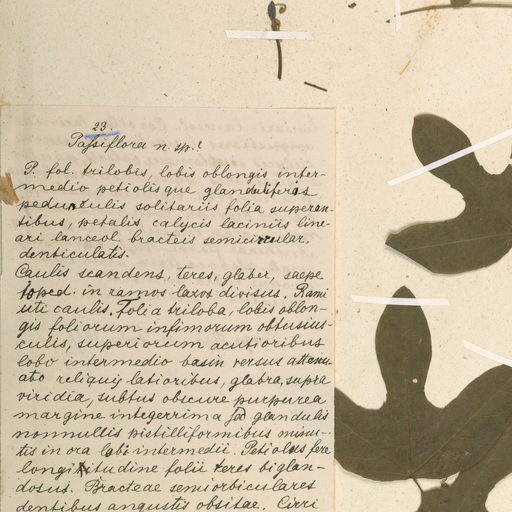 23.
Passiflora n. sp.?
P. fol. trilobis, lobis oblongis inter-
medio petiolisque glanduliferis
pedundulis solitariis folia superan-
tibus, petalis calycis laciniis line-
ari lanceol. bracteis semicircular.
denticulatis.
Caulis scandens, teres, glaber, saepe
10ped. in ramos laxos divisus. Rami
uti caulis. Folia triloba, lobis oblon-
gis foliorum infimorum obtusius-
culis, superiorum acutioribus
lobo intermedio basin versus attenu-
ato reliquis latioribus, glabra, supra
viridia, subtus obscure purpurea
margine integerrima glandulis
nonnullis pistilliformibus minu-
tis in ora lobi intermedii. Petiolus fere
longitudine folii teres biglan-
dosus. Bracteae semiorbiculares
dentibus angustis obsitae. Cirri